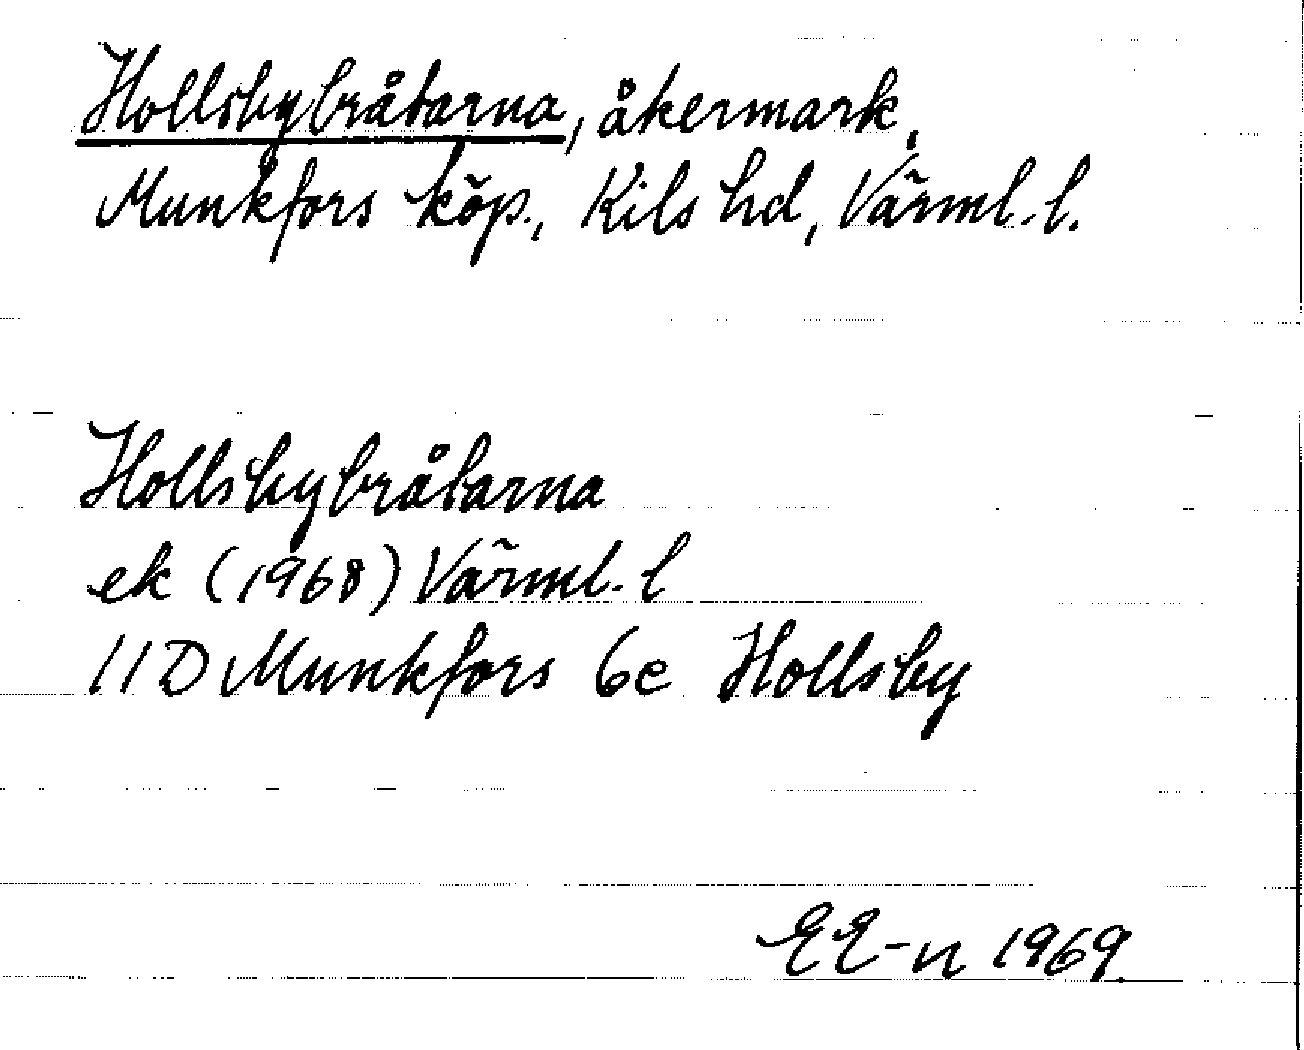 Hollsbybråtarna, åkermark,
Munkfors köp., Kils hd, Värml. l.
Hollsbybråtarna
ek (1968) Värml. l
11D Munkfors 6e Hollsby
EE-n 1969.